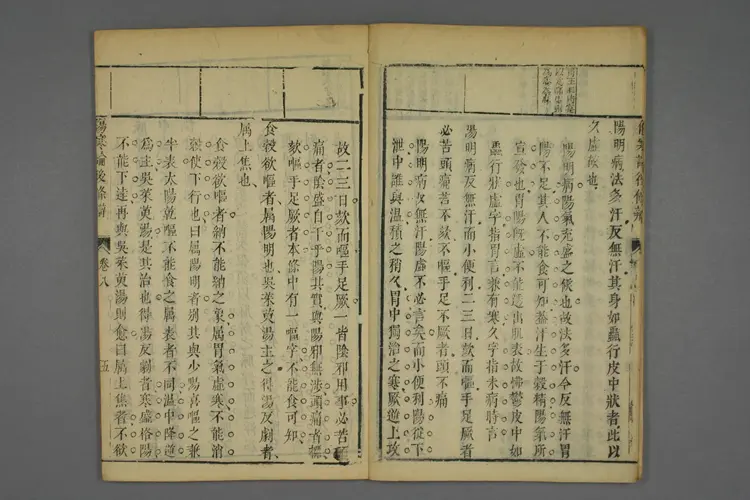 陽明病法多汗反無汗其身如蟲行皮中狀者此以
久虛故也
陽明病陽氣充盛之候也故法多汗今反無汗胃
陽不足其人不能食可知蓋汗生于穀精陽氣所
宣發也胃陽旣虛不能透出肌表故怫鬱皮中如
蟲行狀虛字指胃言兼有寒久字指未病時言
陽明病反無汗而小便利二三日欬而嘔手足厥者
必苦頭痛若不欬不嘔手足不厥者頭不痛
陽明病反無汗陽虛不必言矣而小便利陽從下
泄中誰與溫積之稍久胃中獨治之寒厥逆上攻
故二三日欬而嘔手足厥一皆陰邪用事必苦頭
痛者陰盛自干乎陽其實與陽邪無涉頭痛者標
欬嘔手足厥者本條中有一嘔字不能食可知
食穀欲嘔者屬陽明也吳茱萸湯主之得湯反劇者
屬上焦也
食穀欲嘔者納不能納之象屬胃氣虛寒不能消
穀使下行也曰屬陽明者別其與少陽喜嘔之兼
半表太陽乾嘔不能食之屬表者不同溫中降逆
爲主吳茱萸湯是其治也得湯反劇者寒盛格陽
不能下達再與吳茱萸湯則愈曰屬上焦者不欲
傷寒論後條辨
卷八
五